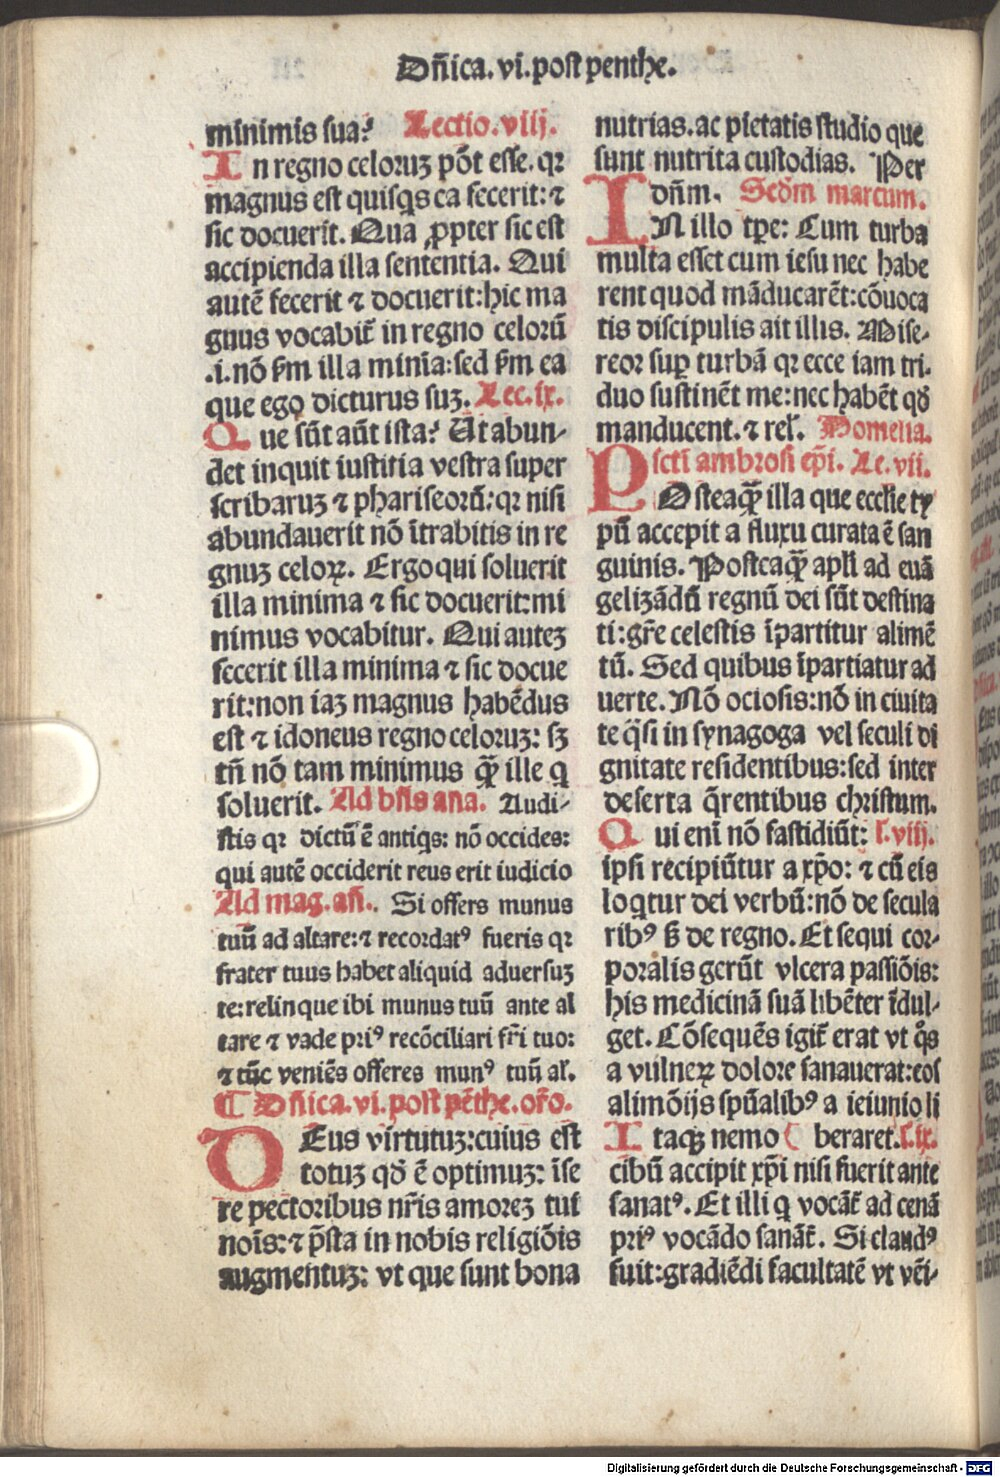 Dn̄ica. vi. post penthe.
minimis sua? Lectio. viij.
In regno celoruꝫ põt esse. qꝛ
magnus est quisqꝫ ea fecerit: ⁊
sic docuerit. Qua ꝓpter sic est
accipienda illa sententia. Qui
autē fecerit ⁊ docuerit: hic ma
gnus vocabit᷑ in regno celorū
.i. nō ẜm illa minīa: sed ẜm ea
que ego dicturus suꝫ. Lec. ix.
Que sūt aūt ista? Ut abun-
det inquit iustitia vestra super
scribaruꝫ ⁊ phariseorū: qꝛ nisi
abundauerit nō ītrabitis in re
gnuꝫ celoꝝ. Ergo qui soluerit
illa minima ⁊ sic docuerit: mi
nimus vocabitur. Qui auteꝫ
fecerit illa minima ⁊ sic docue
rit: non iaꝫ magnus habēdus
est ⁊ idoneus regno celoruꝫ: sꝫ
tn̄ nō tam minimus qꝫ̄ ille q
soluerit. Ad bn̄s ana. Audi-
stis qꝛ dictū ē antiqs: nō occides:
qui autē occiderit reus erit iudicio
Ad mag. an̄. Si offers munus
tuū ad altare: ⁊ recordatꝰ fueris qꝛ
frater tuus habet aliquid aduersuꝫ
te: relinque ibi munus tuū ante al
tare ⁊ vade priꝰ recōciliari fr̄i tuo:
⁊ tūc veniēs offeres munꝰ tuū al'.
¶ Dn̄ica. vi. post pēthe. oro.
DEus virtutuꝫ: cuius est
totuꝫ qd̄ ē optimuꝫ: īse
re pectoribus nr̄is amoreꝫ tui
noīs: ⁊ p̄sta in nobis religiōis
augmentuꝫ: vt que sunt bona
nutrias. ac pietatis studio que
sunt nutrita custodias. Per
dn̄m. Scd̄m marcum.
IN illo tꝑe: Cum turba
multa esset cum iesu nec habe
rent quod māducarēt: cōuoca
tis discipulis ait illis. Mise-
reor suꝑ turbā qꝛ ecce iam tri-
duo sustinēt me: nec habēt qd̄
manducent. ⁊ rel'. Homelia.
scti ambrosi ep̄i. Lc. vii.
POsteaqꝫ̄ illa que ecclie ty
pū accepit a fluxu curata ē san
guinis. Postcaqꝫ̄ apl'i ad euā
gelizādū regnū dei sūt destina
ti: gr̄e celestis īpartitur alimē
tū. Sed quibus īpartiatur ad
uerte. Nō ociosis: nō in ciuita
te q̄si in synagoga vel seculi di
gnitate residentibus: sed inter
deserta q̄rentibus christum.
Qui eni nō fastidiūt: l. viij.
ipsi recipiūtur a xp̄o: ⁊ cū eis
loqtur dei verbū: nō de secula
ribꝰ ẜ de regno. Et sequi cor-
poralis gerūt vlcera passiōis:
his medicinā suā libēter īdul-
get. Cōsequēs igit᷑ erat vt q̄s
a vulneꝝ dolore sanauerat: eos
alimōijs spūalibꝰ a ieiunio li
Itaqꝫ nemo ( beraret. l. ix.
cibū accipit xp̄i nisi fuerit ante
sanatꝰ. Et illi q vocāt᷑ ad cenā
priꝰ vocādo sanāt᷑. Si claudꝰ
fuit: gradiēdi facultatē vt vēi-
Digitalisierung gefördert durch die Deutsche Forschungsgemeinschaft - DFG